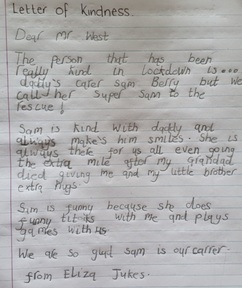 Letter of Kindness.
Dear Mr West
The person that has been
really kind in Lockdown is...
daddy's carer Sam Berry but we
call her Super Sam to the
rescue!
Sam is kind with daddy and
always make's him smile. She is
always there for us all even going
the extra mile after my grandad
died giving me and my little brother
extra hugs.
Sam is funny because she does
funny with me and plays
games with us
We are so glad Sam is our carer.
from Eliza Jukes.